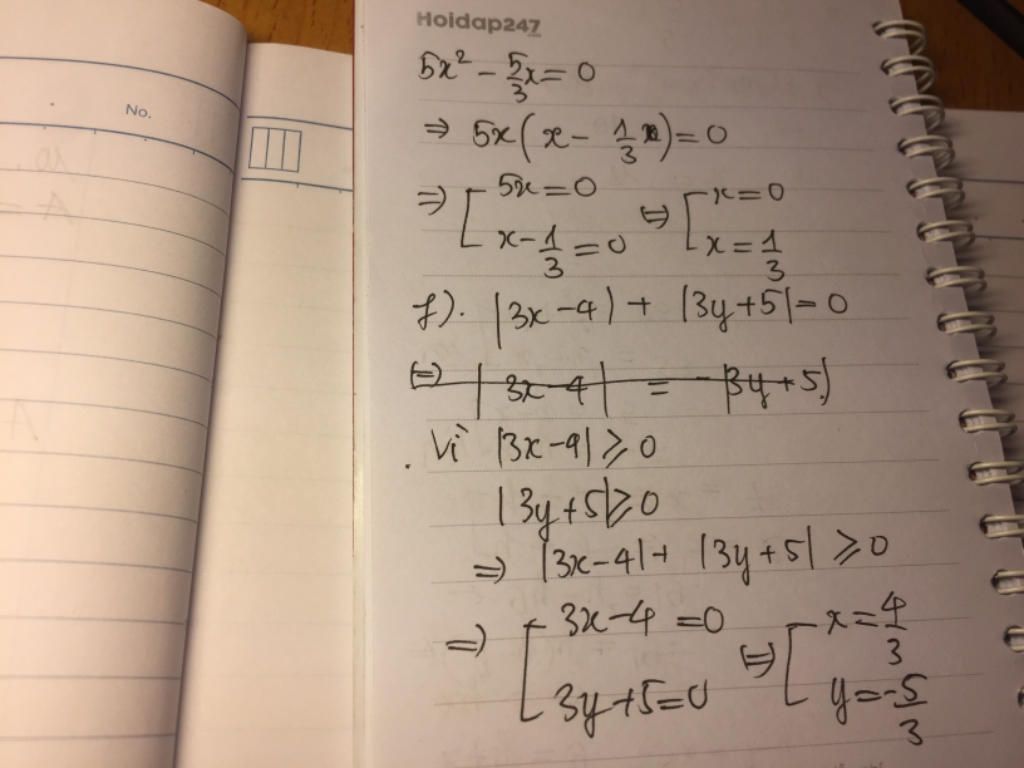 Hoidap247
No.
5x² - 5/3x = 0
⇒ 5x(x - 1/3) = 0
⇒ [ 5x = 0 ⇔ [ x = 0
x - 1/3 = 0 x = 1/3
f). |3x - 4| + |3y + 5| = 0
⇔ |3x - 4| = - |3y + 5|
. Vì |3x - 4| ⩾ 0
|3y + 5| ⩾ 0
⇒ |3x - 4| + |3y + 5| ⩾ 0
⇒ [ 3x - 4 = 0 ⇔ [ x = 4/3
3y + 5 = 0 y = -5/3